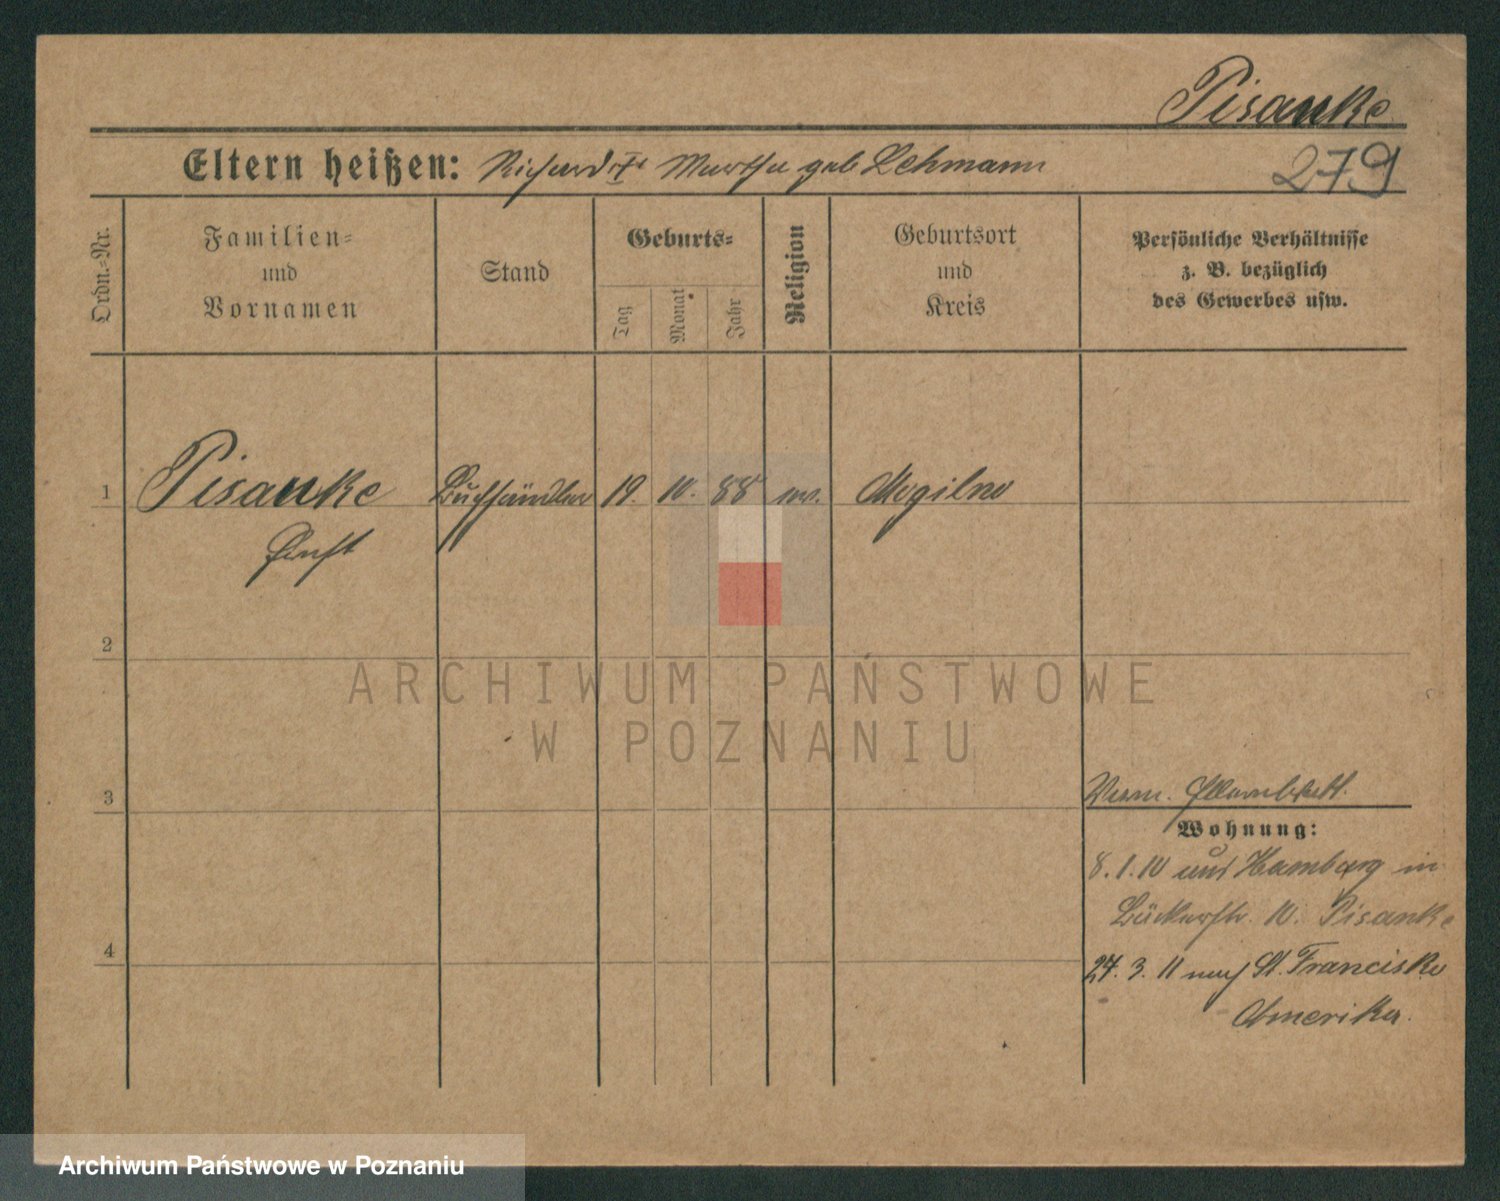 Pisanke
Eltern heißen: Richard Martha geb Lehmann
279
Ordn.-Nr.
Familien-
und
Vornamen
Stand
Geburts-
Tag
Monat
Jahr
Religion
Geburtsort
und
Kreis
Persönliche Verhältnisse
z. B. bezüglich
des Gewerbes usw.
1 Pisanke Buchhändler 19. 10. 88 Mogilno
Ernst
2
3
4
Wohnung:
8. 1. 10 aus Hamburg in
10. Pisanke
27. 3. 11 nach St. Francisko
Amerika.
ARCHIWUM PAŃSTWOWE
W POZNANIU
Archiwum Państwowe w Poznaniu